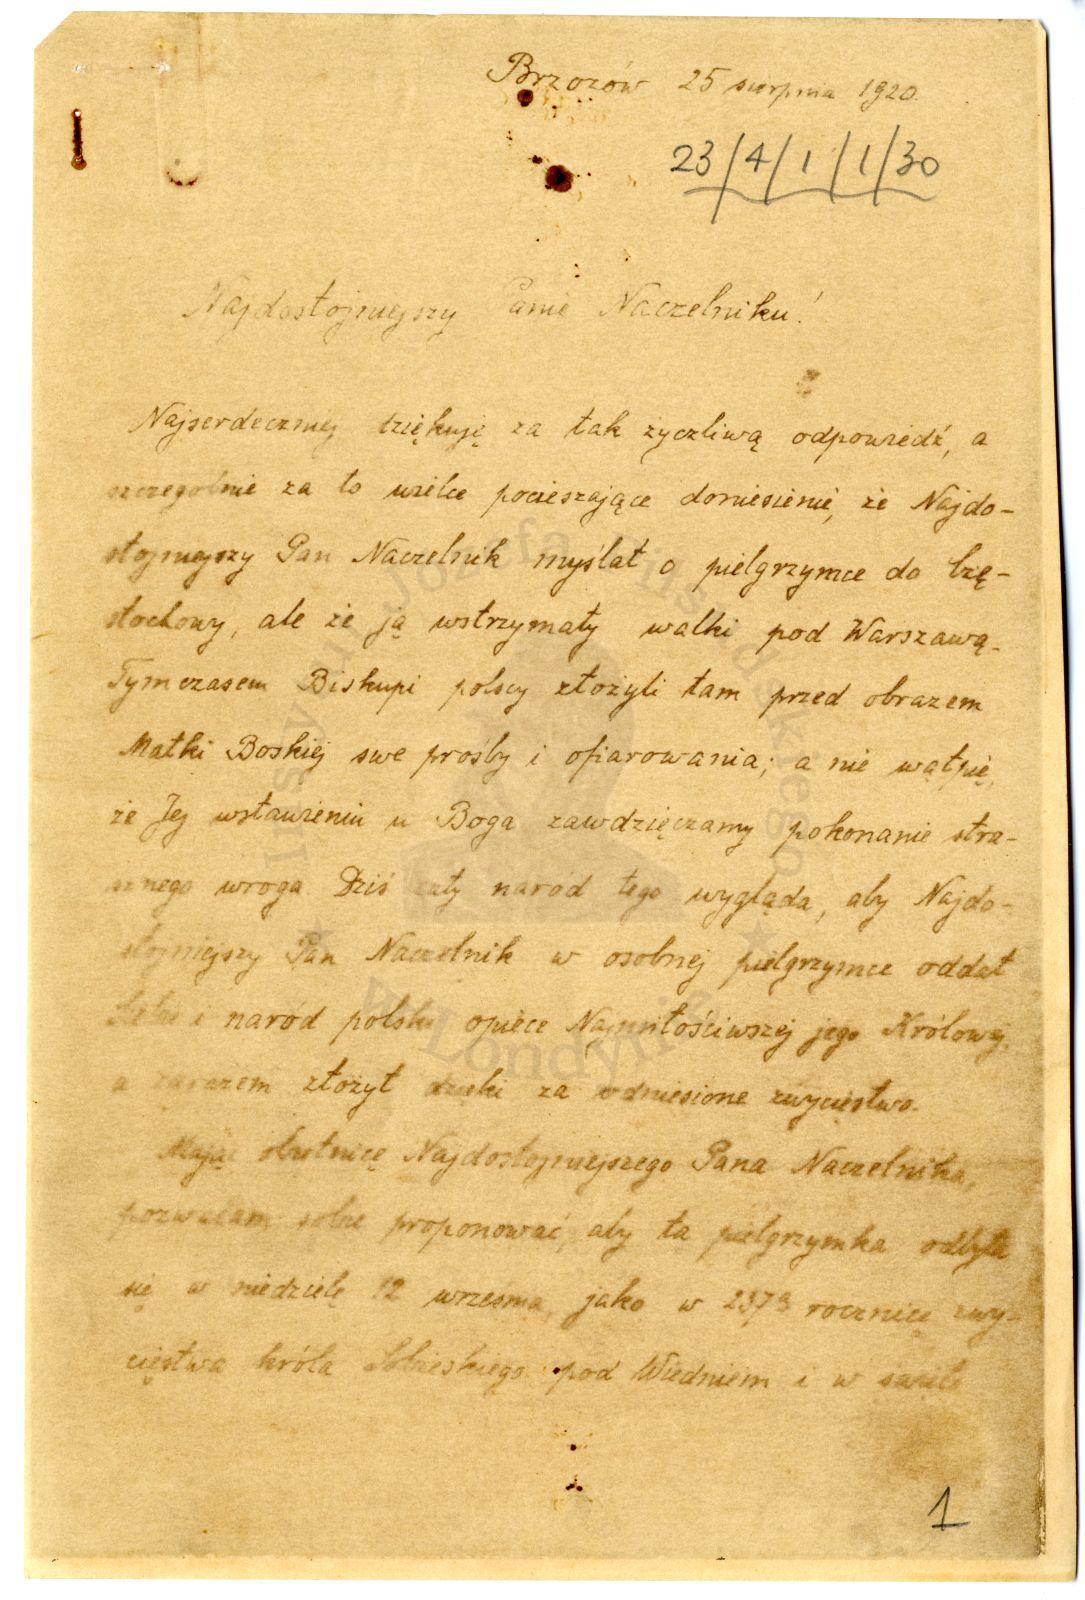 Brzozów 25 sierpnia 1920.
23/4/1/1/30
Najdostojniejszy Panie Naczelniku!
Najserdeczniej dziękuję za tak życzliwą odpowiedź, a
szczególnie za to wielce pocieszające doniesienie, że Najdo-
stojniejszy Pan Naczelnik myślał o pielgrzymce do Czę-
stochowy, ale że ją wstrzymały walki pod Warszawą.
Tymczasem Biskupi polscy złożyli tam przed obrazem
Matki Boskiej swe prośby i ofiarowania; a nie wątpię,
że Jej wstawieniu u Boga zawdzięczamy pokonanie stra-
sznego wroga. Dziś cały naród tego wygląda, aby Najdo-
stojniejszy Pan Naczelnik w osobnej pielgrzymce oddał
siebie i naród polski opiece Najmiłościwszej jego Królowy,
a zarazem złożył dzięki za odniesione zwycięstwo.
Mając obietnicę Najdostojniejszego Pana Naczelnika,
pozwalam sobie proponować, aby ta pielgrzymka odbyła
się w niedzielę 12 września, jako w 237ą rocznicę zwy-
cięstwa króla Sobieskiego pod Wiedniem i w
1
Instytut Józefa Piłsudskiego
w Londynie